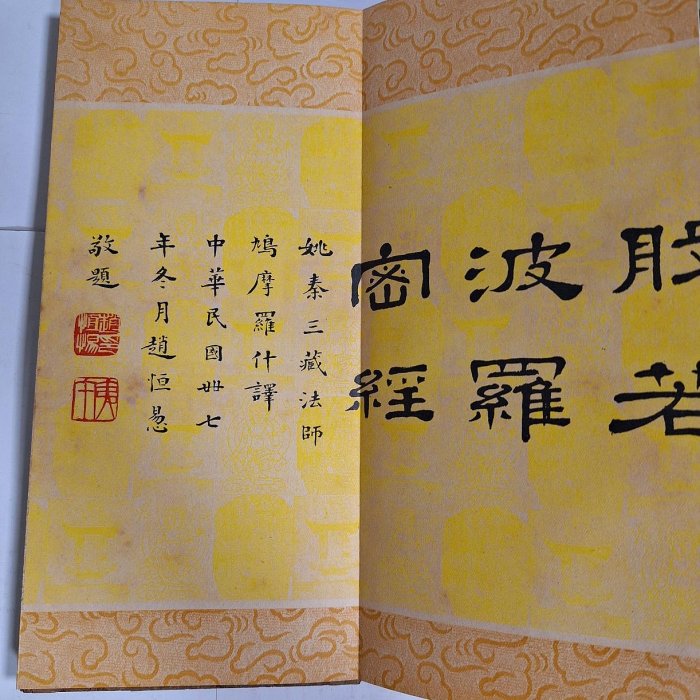 般若
波羅
密經
姚秦三藏法師
鳩摩羅什譯
中華民國卌七
年冬月趙恒惖
敬題
趙印恒惕
夷午